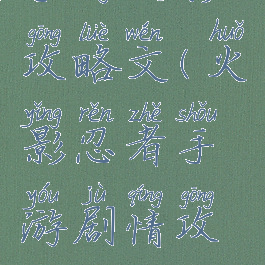 gōng lüè wén huǒ
攻略文(火
yǐng rěn zhě shǒu
影忍者手
yóu jù qíng gōng
游剧情攻